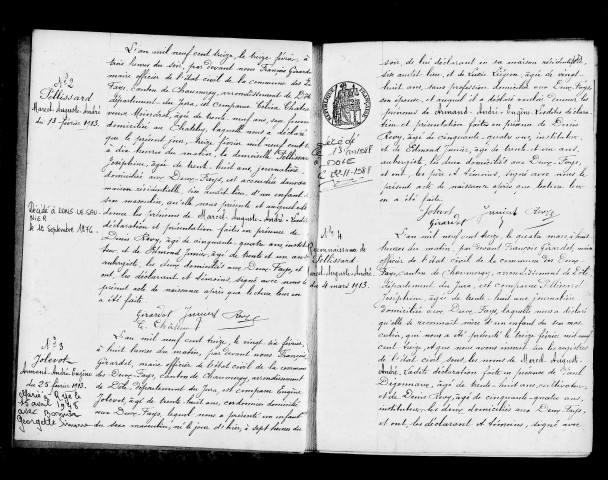 N° 2
Pellissard
Marcel-Auguste-André
du 13 février 1913.
Décédé à LONS-LE-SAU-
NIER
le 12 Septembre 1976
N° 3
Jolevot
Armand-André-Eugène
du 25 février 1913.
Marié à
avril 1948
avec
Georgette
L'an mil neuf cent treize, le treize février, à
trois heures du soir, par devant nous François Girardot
maire officier de l'état civil de la commune des
Deux-Fays, canton de Chaumergy, arrondissement de Dôle
département du Jura, est comparue Célina
veuve âgée de trente-huit ans, sage-femme
domiciliée au Chateley, laquelle nous a déclaré
que le présent jour, treize février mil neuf cent treize
à dix heures du matin, la demoiselle Pellissard
Joséphine, âgée de trente-huit ans, journalière
domiciliée aux Deux-Fays, est accouchée dans sa
maison résidentielle, sise audit lieu, d'un enfant
du sexe masculin, qu'elle nous présente et auquel a dé-
claré donner les prénoms de Marcel-Auguste-André. Ladite
déclaration et présentation faites en présence de
Denis Revoy, âgé de cinquante-quatre ans, institu-
teur, et de Edmond Junier, âgé de trente et un ans
aubergiste, les deux domiciliés aux Deux-Fays, et
ont, les déclarant et témoins, signé avec nous le
présent acte de naissance après que lecture leur en
a été faite.
Girardot Junier Revoy
L'an mil neuf cent treize, le vingt-six février,
à huit heures du matin, par devant nous François
Girardot, maire officier de l'état civil de la commune
des Deux-Fays, canton de Chaumergy, arrondissement
de Dôle, département du Jura, est comparu Eugène
Jolevot, âgé de trente-huit ans, cordonnier, domicilié
aux Deux-Fays, lequel nous a présenté un enfant
du sexe masculin, né le jour d'hier, à sept heures du
DOLE
N° 4
Reconnaissance de
Pellissard
Marcel-Auguste-André
du 4 mars 1913.
soir, de lui déclarant en sa maison résidentielle,
sise audit lieu, et de Lucie âgée de vingt-
huit ans, sans profession domiciliée aux Deux-Fays,
son épouse, et auquel il a déclaré vouloir donner les
prénoms de Armand-André-Eugène. Lesdites déclara-
tion et présentation faites en présence de Denis
Revoy, âgé de cinquante-quatre ans, instituteur,
et de Edmond Junier, âgé de trente et un ans,
aubergiste, les deux domiciliés aux Deux-Fays,
et ont, les père et témoins, signé avec nous le
présent acte de naissance après que lecture leur
en a été faite.
Jolevot Junier Revoy
Girardot
L'an mil neuf cent treize, le quatre mars, à
huit heures du matin, par devant François Girardot, maire
officier de l'état civil de la commune des Deux-
Fays, canton de Chaumergy, arrondissement de Dôle
département du Jura, est comparue Pellissard
Joséphine, âgée de trente-huit ans, journalière
domiciliée aux Deux-Fays, laquelle nous a déclaré
qu'elle se reconnait mère d'un enfant du sexe mas-
culin, qui nous a été présenté le treize février mil
neuf cent treize, et que nous avons inscrit sur les registres
de l'état civil sous les noms de Marcel-Auguste-
André. Ladite déclaration faite en présence de Paul
âgé de trente-huit ans, cultivateur,
et de Denis Revoy, âgé de cinquante-quatre ans,
instituteur, les deux domiciliés aux Deux-Fays,
et ont, les déclarant et témoins, signé avec